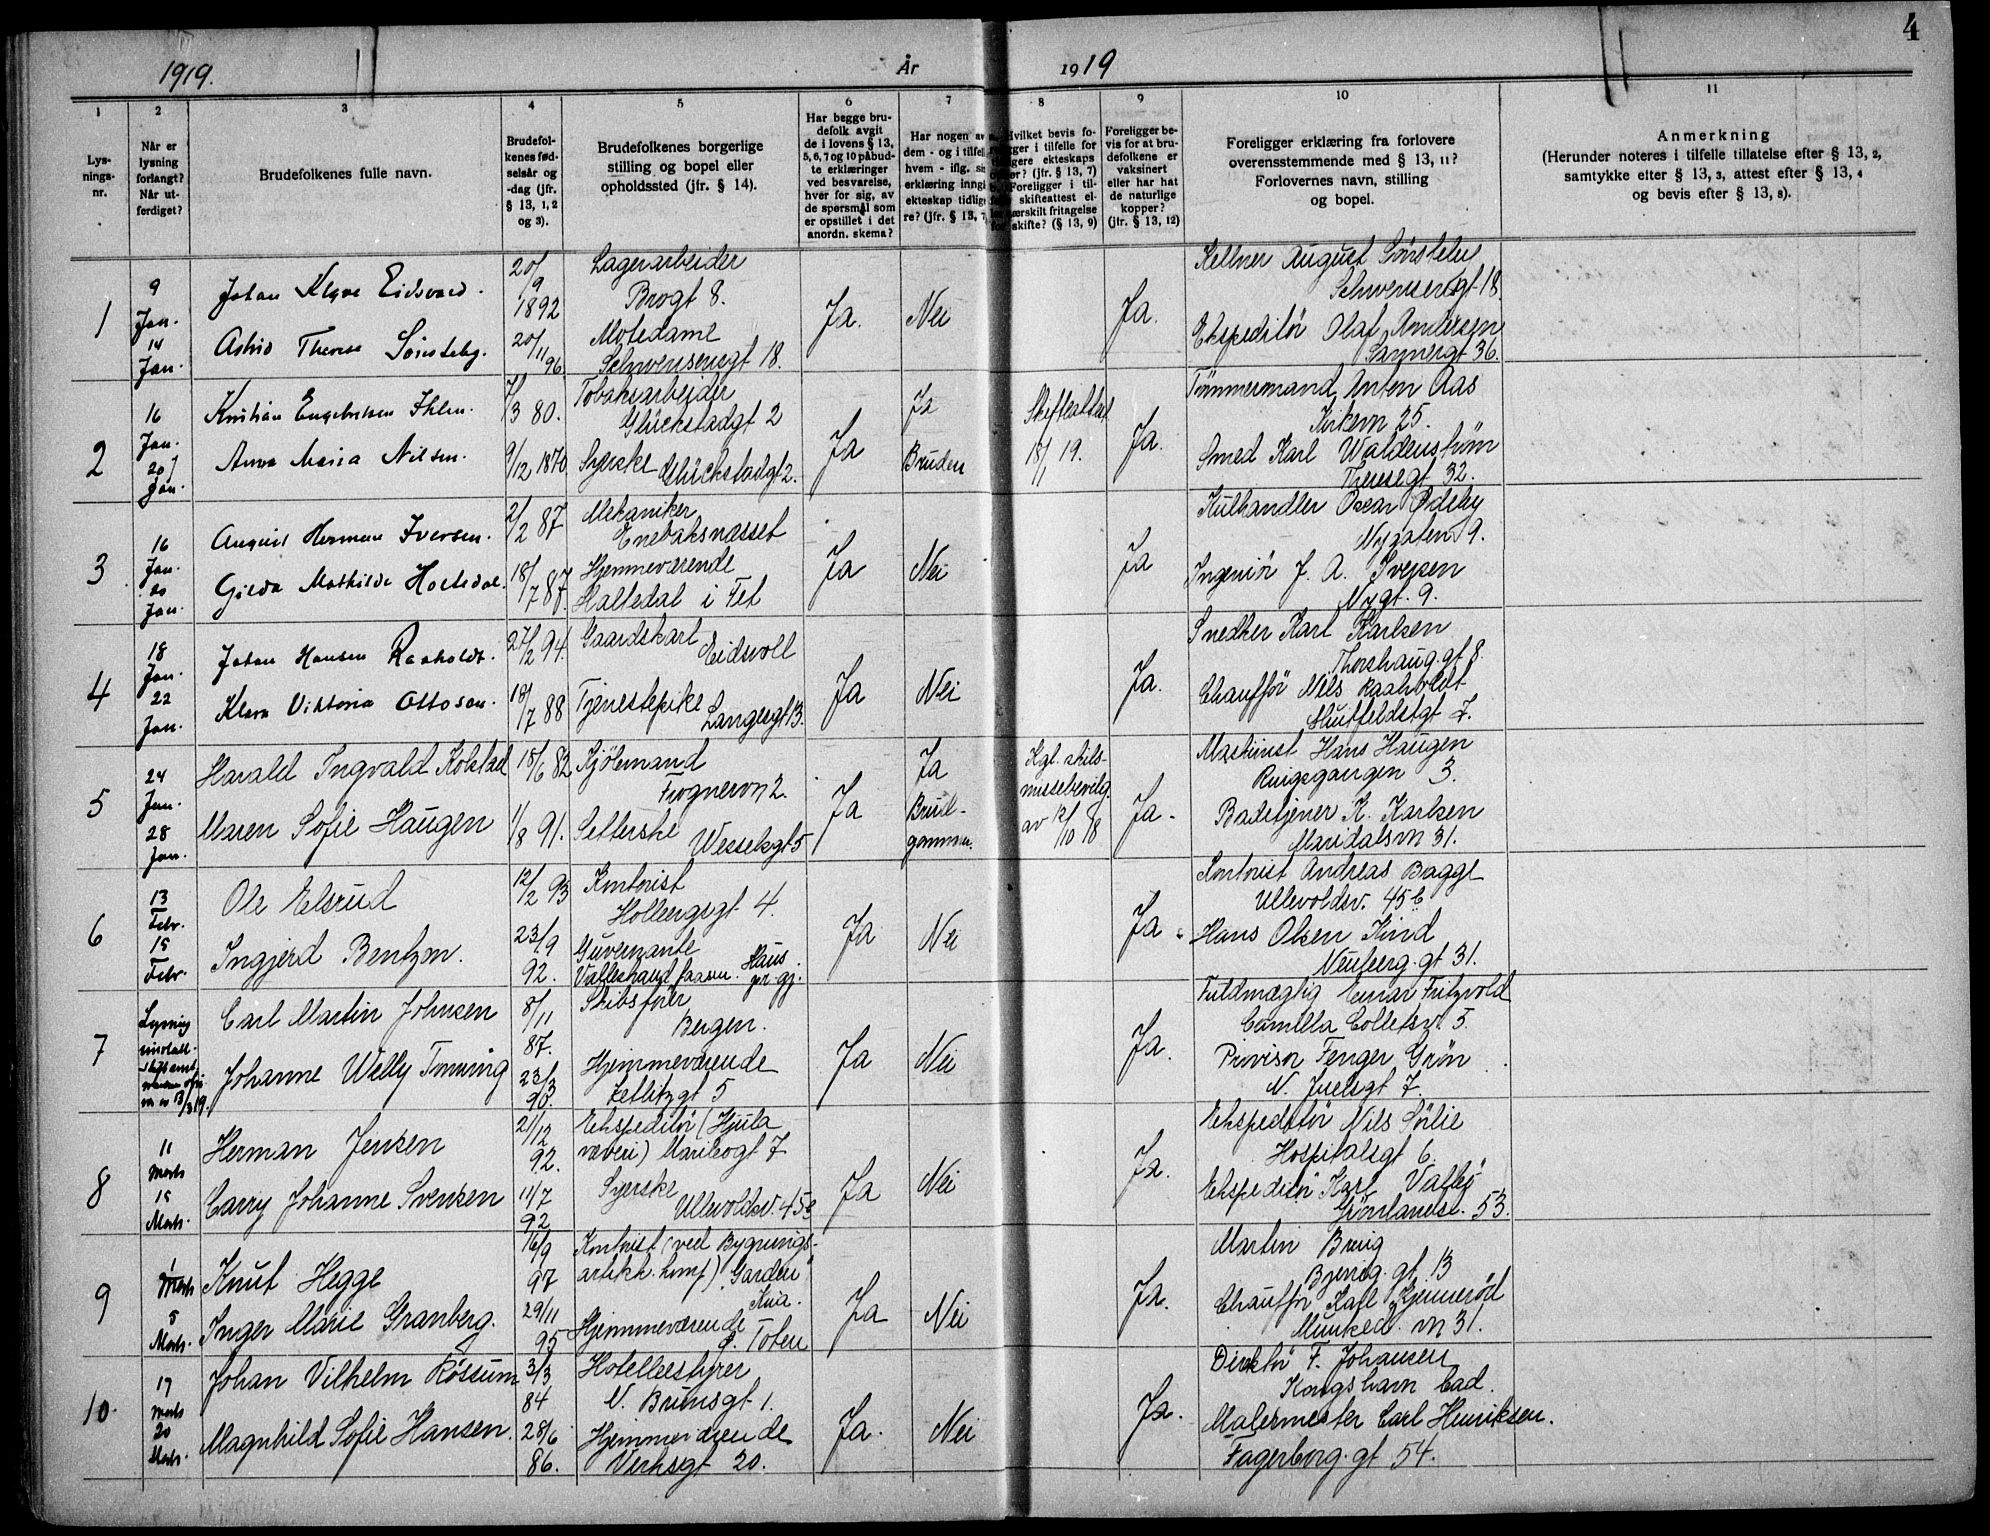 4
1919.
År
1919
1
2
3
4
5
6
7
8
9
10
11
Lys-
nings-
nr.
Når er
lysning
forlangt?
Når ut-
ferdiget?
Brudefolkenes fulle navn.
Brudefol-
kenes fød-
selsår og
-dag (jfr.
§ 13, 1, 2
og 3).
Brudefolkenes borgerlige
stilling og bopel eller
opholdssted (jfr. § 14).
Har begge bru-
defolk avgit
de i lovens § 13,
5, 6, 7 og 10 påbud-
te erklæringer
ved besvarelse,
hver for sig, av
de spørsmål som
er opstillet i det
anordn. skema?
Har nogen av
dem - og i tilfelle
hvem - iflg.
erklæring inngå
ekteskap tidlige
re? (jfr. § 13, 7
Hvilket bevis fo-
religger i tilfelle for
tidligere ekteskaps
opløsning? (jfr. § 13, 7)
Foreligger i til-
felle skifteattest el-
ler særskilt fritagelse
for skifte? (§ 13, 9)
Foreligger be-
vis for at bru-
defolkene er
vaksinert
eller har hat
de naturlige
kopper?
(jfr. § 13, 12)
Foreligger erklæring fra forlovere
overensstemmende med § 13, 11?
Forlovernes navn, stilling
og bopel.
Anmerkning
(Herunder noteres i tilfelle tillatelse efter § 13, 2,
samtykke efter § 13, 3, attest efter § 13, 4
og bevis efter § 13, 8).
1
9
Jan.
14
Jan.
Johan Eidsvold.
Astrid Therese Sørsteby.
20/9
1892
20/11 96.
Lagerarbeider
Brogt 8.
Motedame
Schwensensgt 18.
Ja.
Nei
Ja.
Kellner August Sørsteby
Schwensensgt 18.
Ekspeditør Olaf Andersen
Sannergt 36.
2
16
Jan.
20
Jan.
Kristian Engebretsen Ihlen.
Anna Maria Nilsen.
7/3 80.
9/12 1870
Tobaksarbeider
Glückstadgt 2
Syerske Glückstadgt 2.
Ja
Ja
Bruden
Skifteattest
18/1 19.
Ja.
Tømmermand Anton Aas
Kirkevn 25.
Smed Karl Waldenstrøm
Theresegt 32.
3
16
Jan.
20
Jan.
August Herman Iversen.
Gilda Mathilde Holtedal.
2/2 87
18/7 87.
Mekaniker
Enebaksnesset
Hjemmeværende
Holtedal i Fet
Ja
Nei
Ja
Kulhandler Oscar Ødeby
Nygaten 9.
Ingeniør J. A. Ivejsen
Nygt. 9.
4
18
Jan.
22
Jan.
Johan Hansen Raaholdt.
Klara Viktoria Ottosen.
27/2 94.
18/7 88
Gaardskarl
Eidsvoll
Tjenestepike
Langesgt 13.
Ja
Nei
Ja.
Snedker Karl Karlsen
Thorshaug. gt 8.
Chauffør Nils Raaholdt
Huitfeldtsgt 7.
5
24
Jan.
28
Jan.
Harald Ingvald Kolstad
Maren Sofie Haugen
18/6 82
1/8 91.
Kjøkmand
Frognervn 2.
Setterske
Wesselsgt 5
Ja
Ja
Brud-
gommen.
Kgl. skils-
missebevilg.
av 12/10 18
Ja.
Maskinist Hans Haugen
Ruigsgangen 3.
Badetjener K. Karlsen
Maridalsvn 31.
6
13
Febr.
15
Febr.
Ole Elsrud
Ingjerd Bentzon.
12/2 93
23/9
92.
Kontorist
Holbergsgt 4.
Guvernante
Ja
Nei
Ja.
Kontorist Andreas Bagge
Ullevoldsv. 45 b
Hans Olsen Kind
Neuberg. gt 31.
7
Lysning
Carl Martin Johnsen
Johanne Welly Tmning
8/11
87.
23/3
93.
Skibsfører
Bergen.
Hjemmeværende
Zetlitzgt 5
Ja
Nei
Ja.
Fuldmægtig Einar Fritzvold
Camilla Colletsv. 5.
Provisor Fenger Grøn
N. Juelsgt 7.
8
11
Marts
15
Marts.
Herman Jensen
Carry Johanne Svensen
21/12
92.
11/7
92
Ekspeditør (Hjula
væveri) Maribogt 7
Syerske
Ullevoldsv. 45 c
Ja
Nei
Ja.
Ekspeditør Nils Sølie
Hospitalsgt 6.
Ekspeditør Karl Valbø
Grønlandsl. 53.
9
1
Marts
5
Marts.
Knut Hegge
Inger Marie Granberg.
16/9
97
29/11
95
Kontorist (ved Bygnings-
artikk. komp.) "Garden"
Hjemmeværende
Ø. Toten
Ja
Nei
Ja.
Martin Breig
Bjerreg. gt 13
Chauffør Karl Kjennerød
Munked. vn 31.
10.
17
Marts
20
Marts.
Johan Vilhelm Røssum
Magnhild Sofie Hansen.
3/3
84
28/6
86.
Hotelbestyrer
N. Brunsgt 1.
Hjemmeværende
Verksgt 20.
Ja.
Nei
Ja.
Direktør F. Johansen
Kongshavn bad.
Malermester Carl Henriksen.
Fagerborg. gt 54.